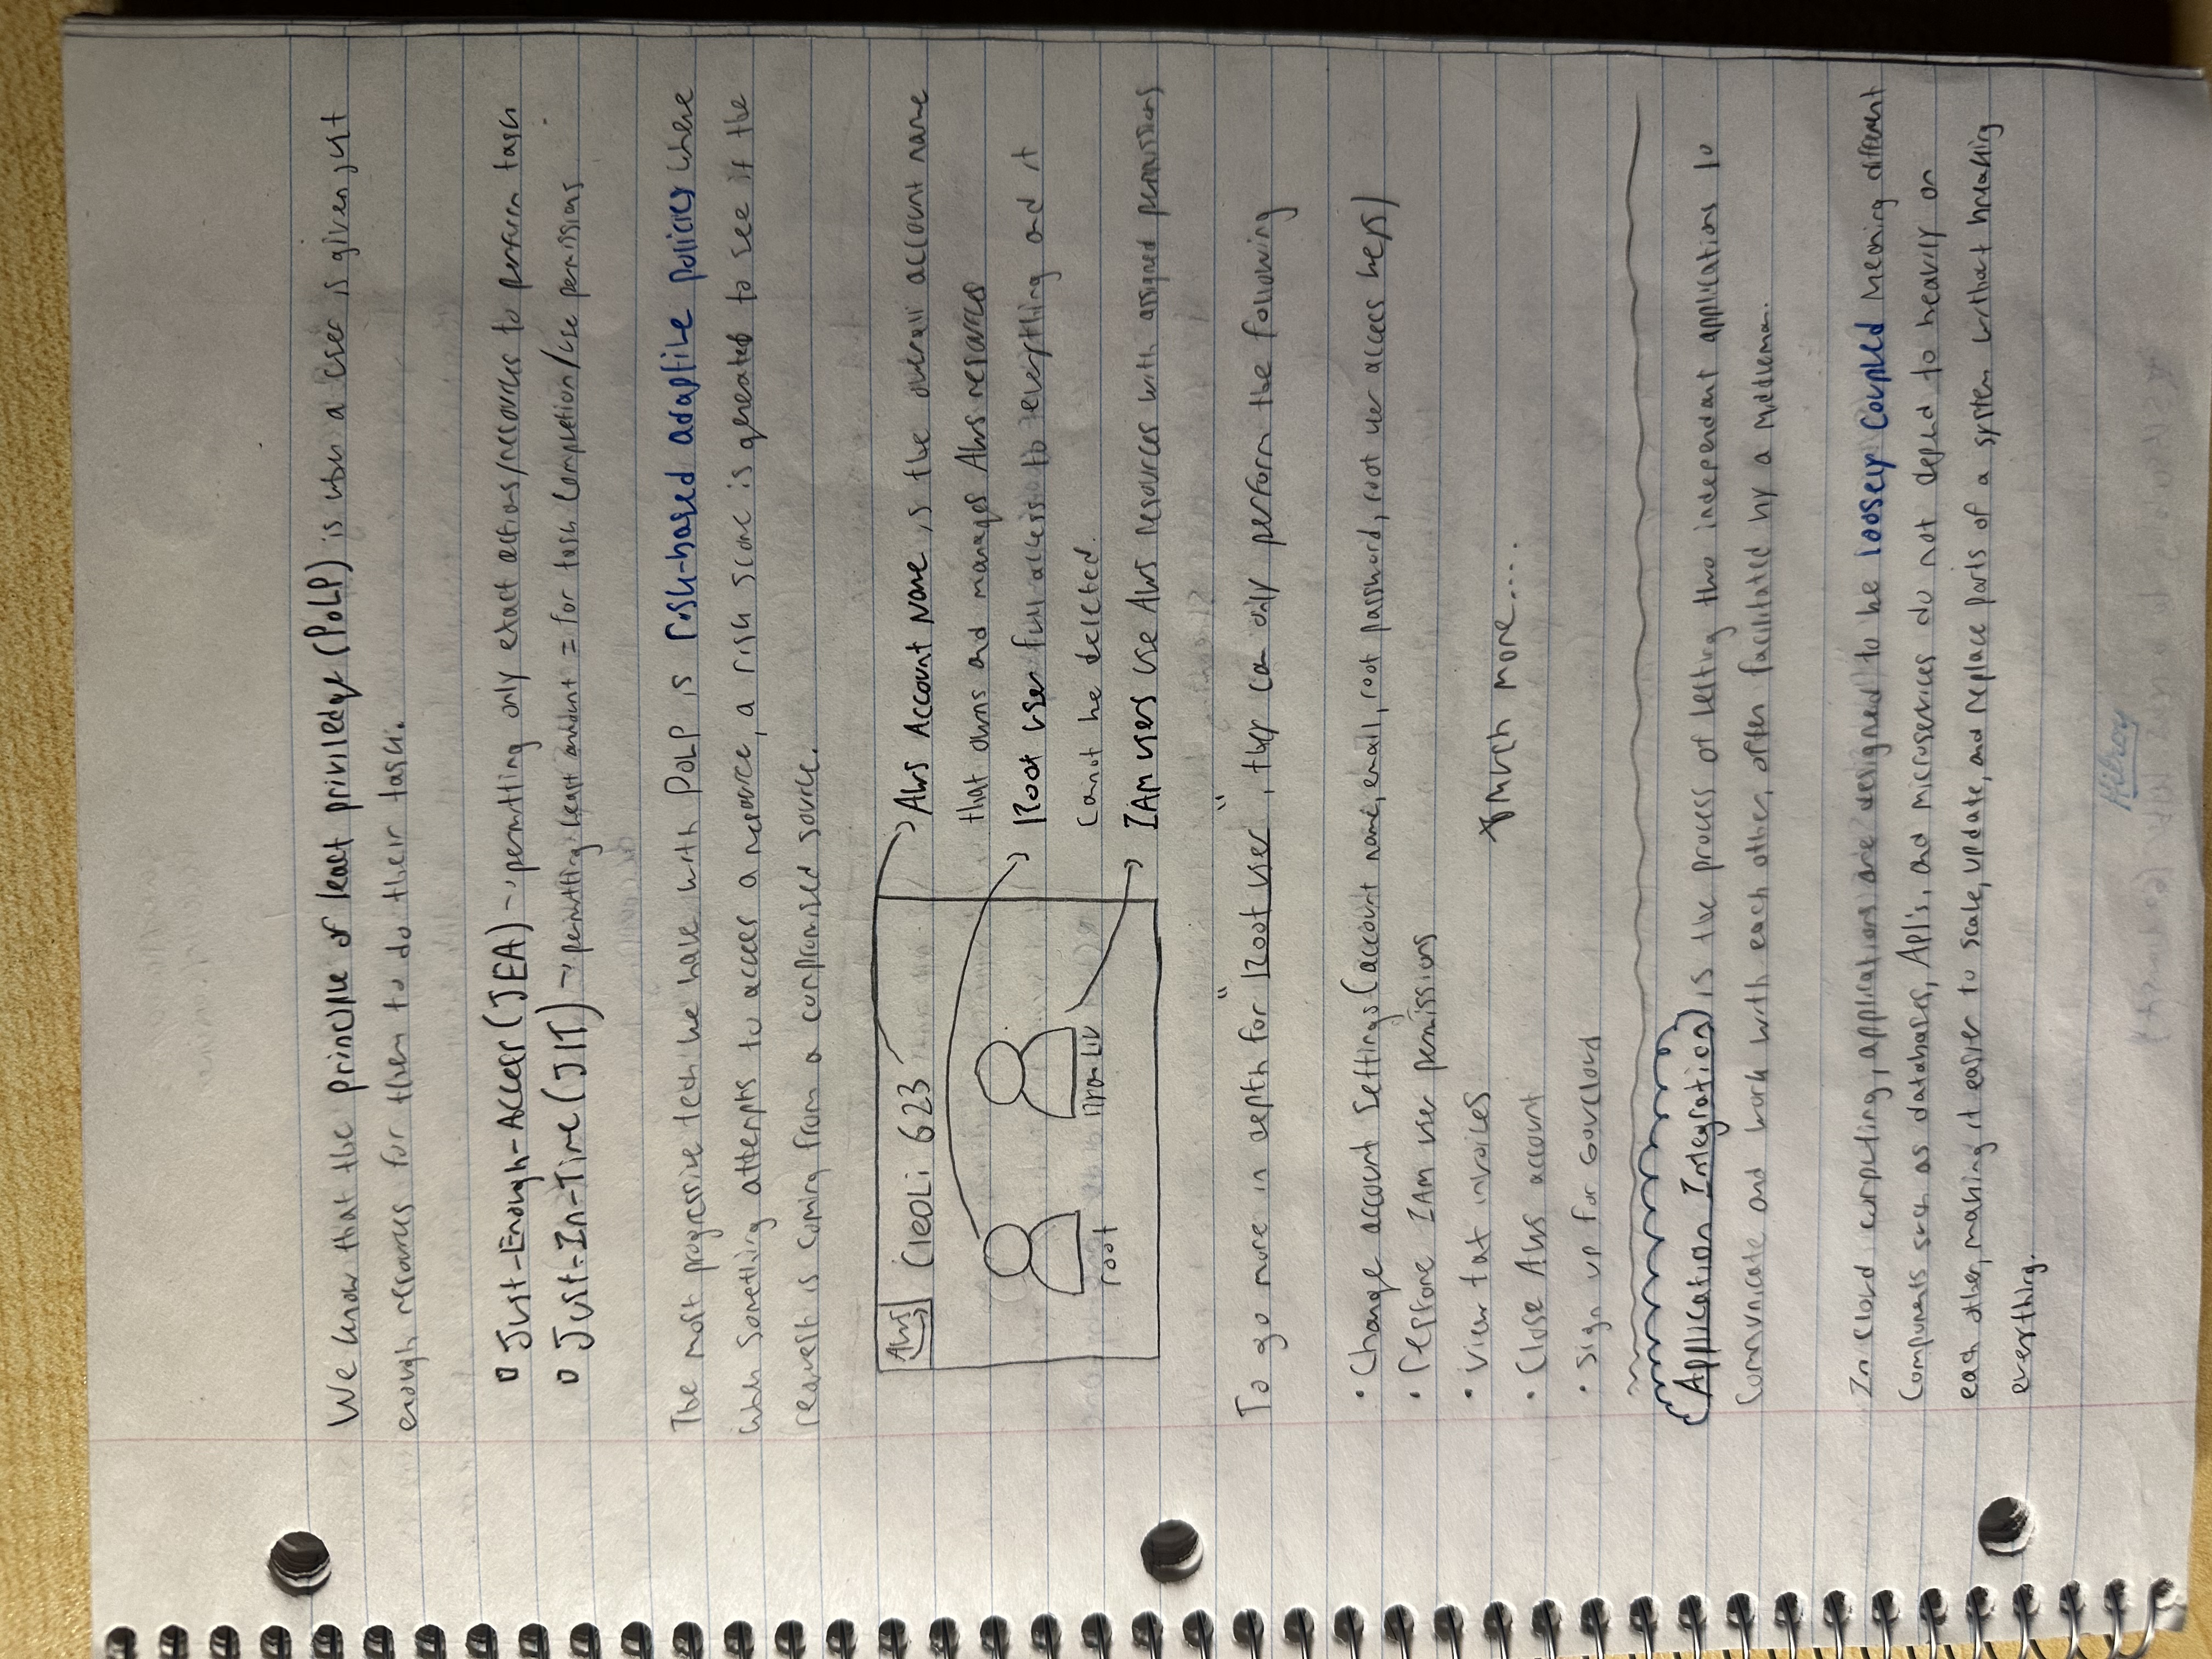 We know that the principle of least priviledge (PoLP) is when a user is given just
enough resources for them to do their task.
Just-Enough-Access (JEA) → permitting only exact actions/resources to perform task
Just-In-Time (JIT) → permitting least amount = for task completion/use permissions
The most progressive tech we have with PoLP is risk-based adaptive policies where
when something attempts to access a resource, a risk score is generated to see if the
request is coming from a compromised source.
AWS
CleoLi 623
root
AWS Account Name is the overall account name
that owns and manages AWS resources
Root user full access to everything and it
canot be deleted.
IAM users use AWS resources with assigned permissions
To go more in depth for "Root user", they can only perform the following
• Change account settings (account name, email, root password, root user access keys)
• restore IAM user permissions
• View tax invoices
* much more....
• Close AWS account
• Sign up for GovCloud
Application Integration is the process of letting two independant applications to
communicate and work with each other, often facilitated by a middleman.
In cloud computing, applications are designed to be loosely coupled meaning different
components such as databases, API's, and microservices do not depend to heavily on
each other, making it easier to scale, update, and replace parts of a system without breaking
everything.
Hilroy